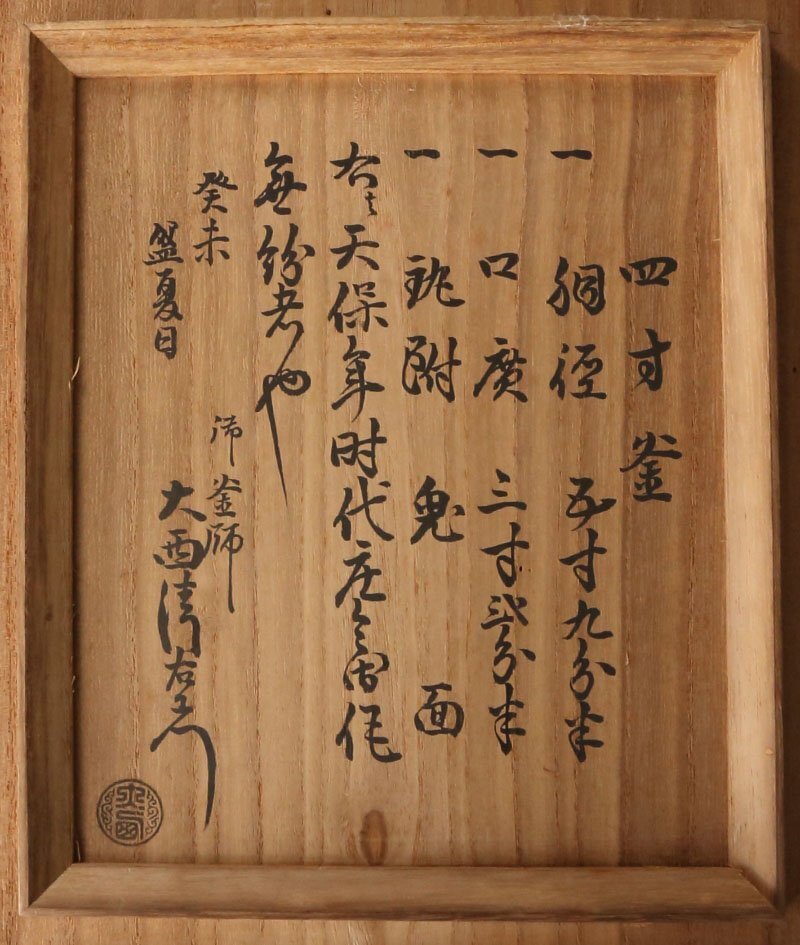 四寸釜
一 胴径 五寸九分半
一 口廣 三寸弐分半
一 鐶附 鬼面
右ハ天保年时代庄作
無紛者也
癸未
盛夏日
御釜師
大西清右衛门
大西